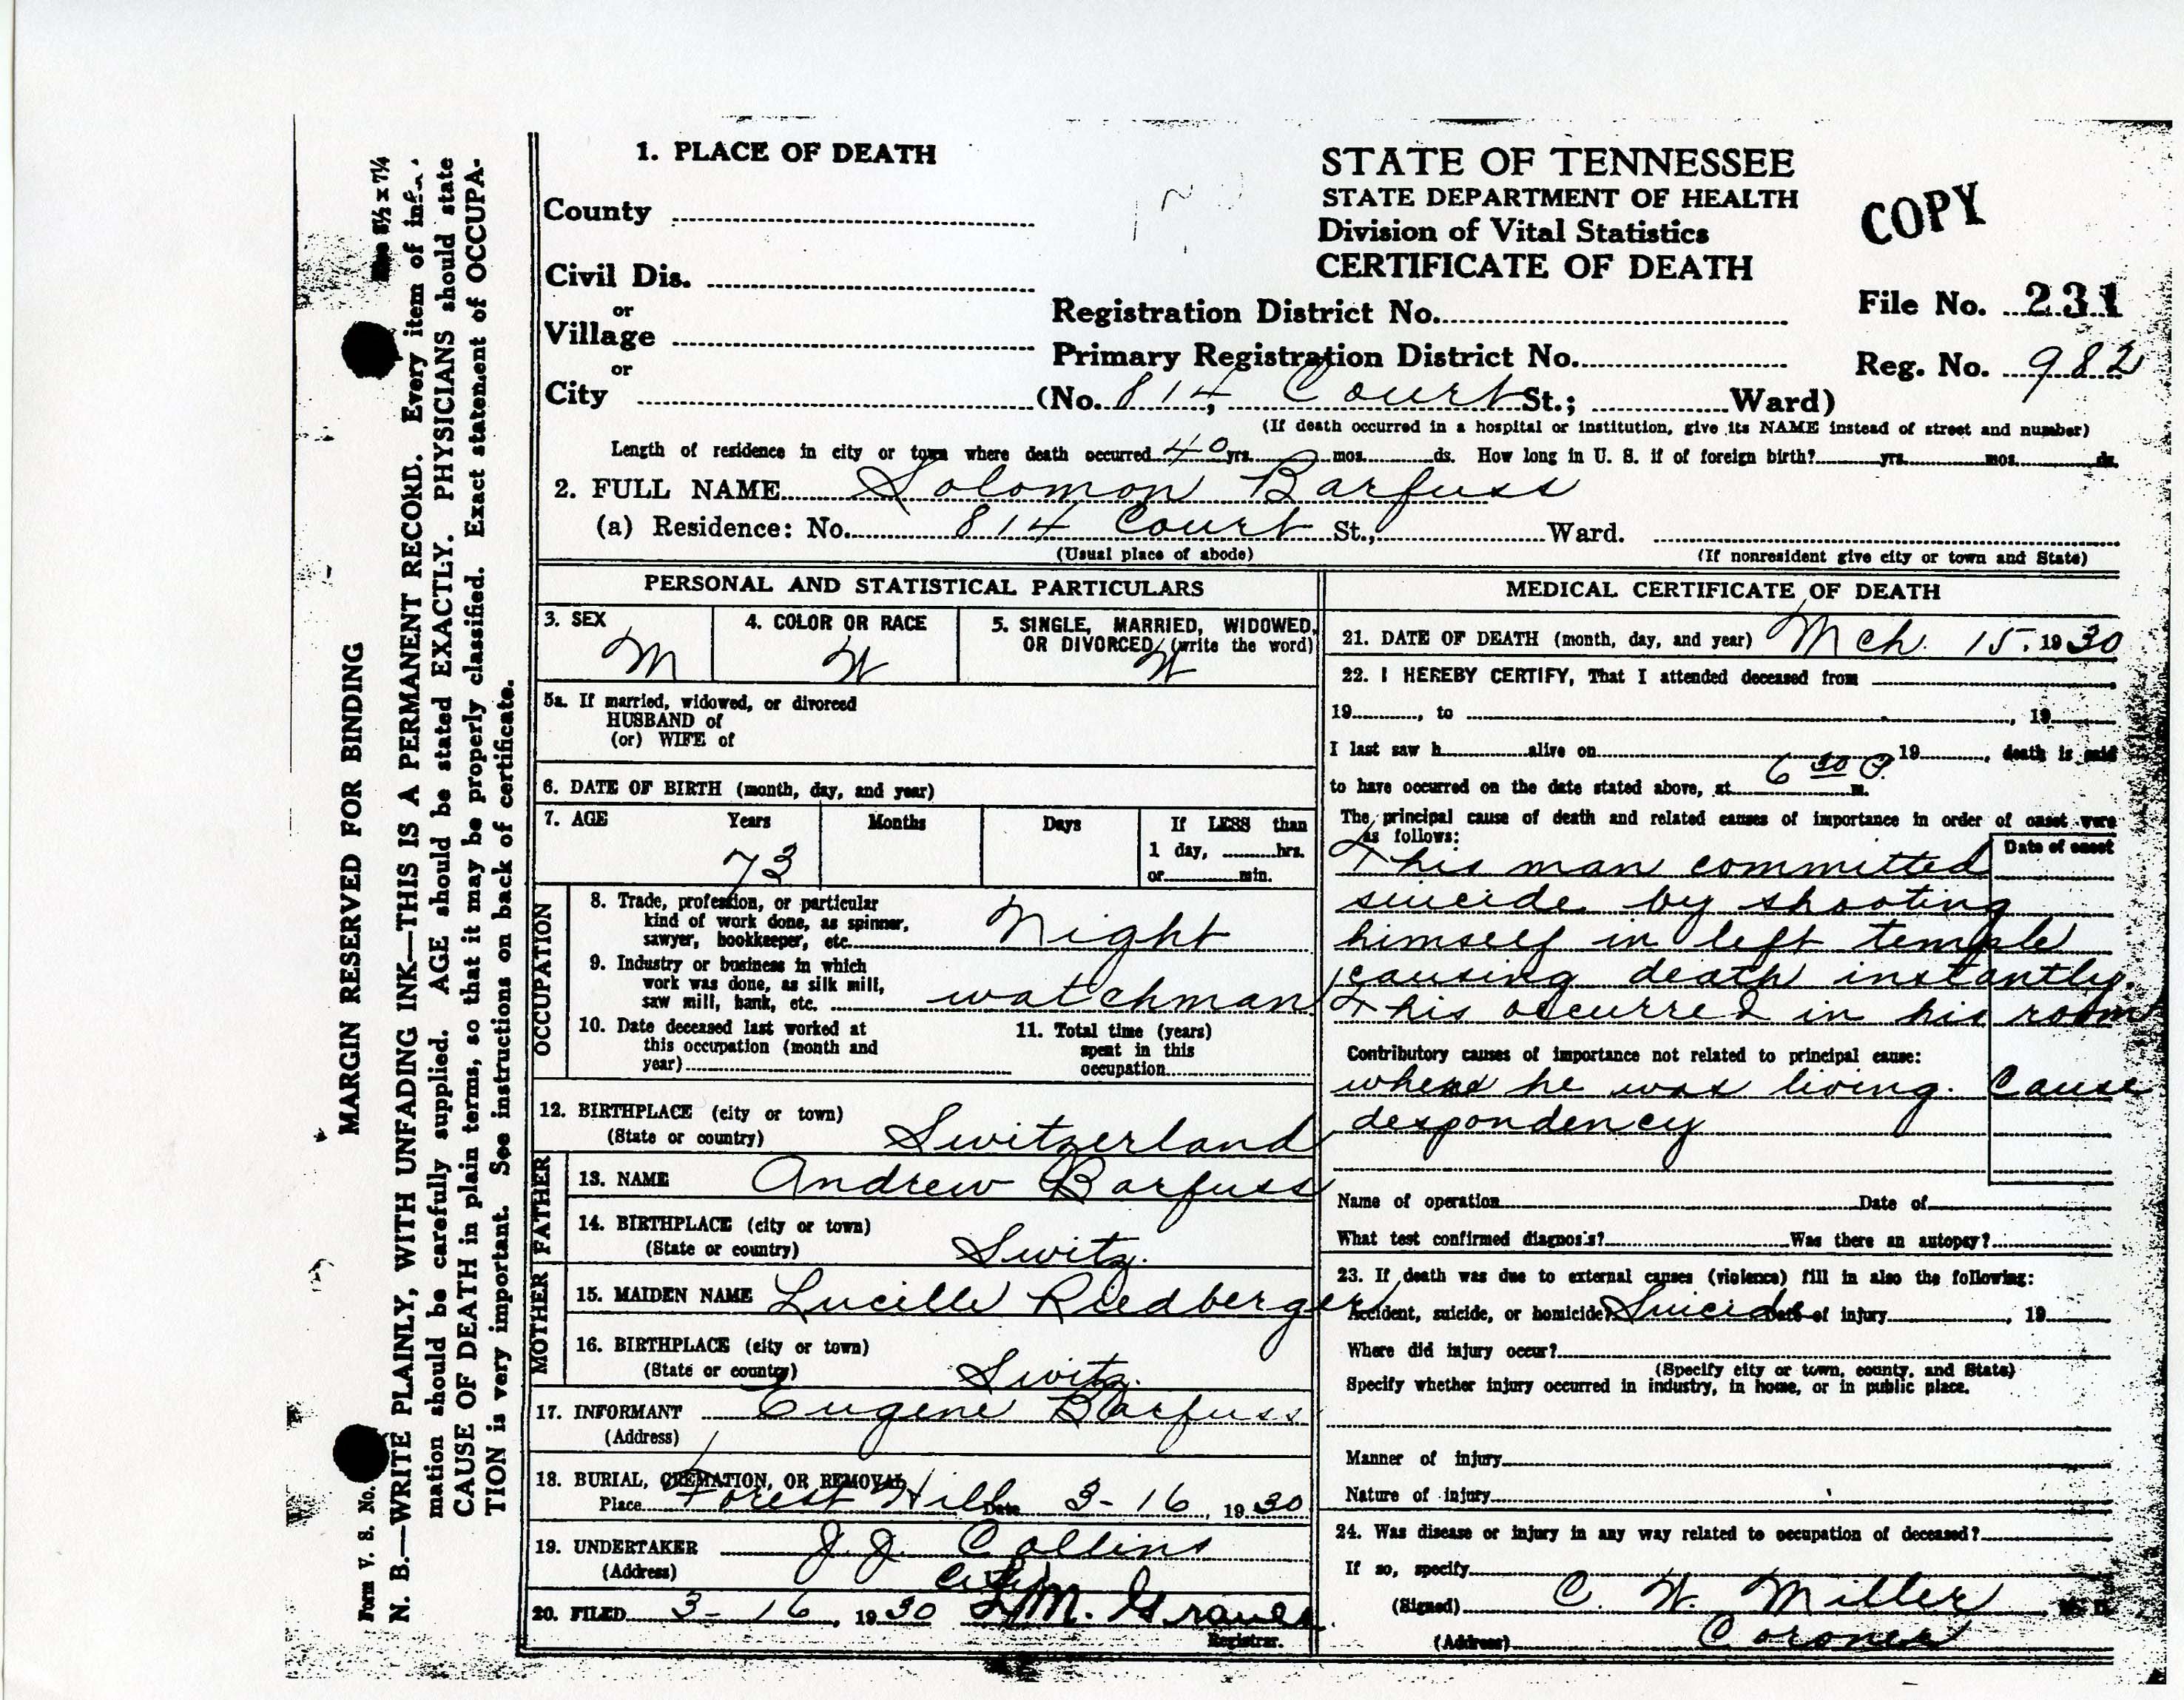 1. PLACE OF DEATH
County
Civil Dis.
or
Village
or
City
STATE OF TENNESSEE
STATE DEPARTMENT OF HEALTH
Division of Vital Statistics
CERTIFICATE OF DEATH
COPY
Registration District No.
File No. 231
Primary Registration District No.
Reg. No. 982
(No. 814, Court St.; Ward)
(If death occurred in a hospital or institution, give its NAME instead of street and number)
Length of residence in city or town where death occurred 40 yrs. mos. ds. How long in U. S. if of foreign birth? yrs. mos. ds.
2. FULL NAME Solomon Barfuss
(a) Residence: No. 814 Court St., Ward.
(Usual place of abode) (If nonresident give city or town and State)
PERSONAL AND STATISTICAL PARTICULARS
3. SEX
M
4. COLOR OR RACE
W
5. SINGLE, MARRIED, WIDOWED,
OR DIVORCED (write the word)
W
5a. If married, widowed, or divorced
HUSBAND of
(or) WIFE of
6. DATE OF BIRTH (month, day, and year)
7. AGE Years Months Days If LESS than
1 day, hrs.
or min.
73
OCCUPATION
8. Trade, profession, or particular
kind of work done, as spinner,
sawyer, bookkeeper, etc. Night
9. Industry or business in which
work was done, as silk mill,
saw mill, bank, etc. watchman
10. Date deceased last worked at
this occupation (month and
year)
11. Total time (years)
spent in this
occupation
12. BIRTHPLACE (city or town)
(State or country) Switzerland
FATHER
13. NAME Andrew Barfuss
14. BIRTHPLACE (city or town)
(State or country) Switz.
MOTHER
15. MAIDEN NAME Lucille Riedberger
16. BIRTHPLACE (city or town)
(State or country) Switz.
17. INFORMANT Eugene Barfuss
(Address)
18. BURIAL, CREMATION, OR REMOVAL
Place Forest Hill Date 3-16, 1930
19. UNDERTAKER J. J. Collins
(Address) City
20. FILED 3-16, 1930 L. M. Graves
Registrar.
MEDICAL CERTIFICATE OF DEATH
21. DATE OF DEATH (month, day, and year) Mch. 15. 1930
22. I HEREBY CERTIFY, That I attended deceased from
19 , to , 19
I last saw h alive on 19 , death is said
to have occurred on the date stated above, at 6 30 P. m.
The principal cause of death and related causes of importance in order of onset were
as follows:
Date of onset
This man committed
suicide by shooting
himself in left temple
causing death instantly.
This occurred in his room
Contributory causes of importance not related to principal cause:
where he was living. Cause
despondency
Name of operation Date of
What test confirmed diagnosis? Was there an autopsy?
23. If death was due to external causes (violence) fill in also the following:
Accident, suicide, or homicide? Suicide Date of injury , 19
Where did injury occur?
(Specify city or town, county, and State)
Specify whether injury occurred in industry, in home, or in public place.
Manner of injury
Nature of injury
24. Was disease or injury in any way related to occupation of deceased?
If so, specify
(Signed) C. W. Miller M. D.
(Address) Coroner
MARGIN RESERVED FOR BINDING
Form V. S. No.
Size 8½ x 7¼
N. B.—WRITE PLAINLY, WITH UNFADING INK—THIS IS A PERMANENT RECORD. Every item of infor-
mation should be carefully supplied. AGE should be stated EXACTLY. PHYSICIANS should state
CAUSE OF DEATH in plain terms, so that it may be properly classified. Exact statement of OCCUPA-
TION is very important. See instructions on back of certificate.